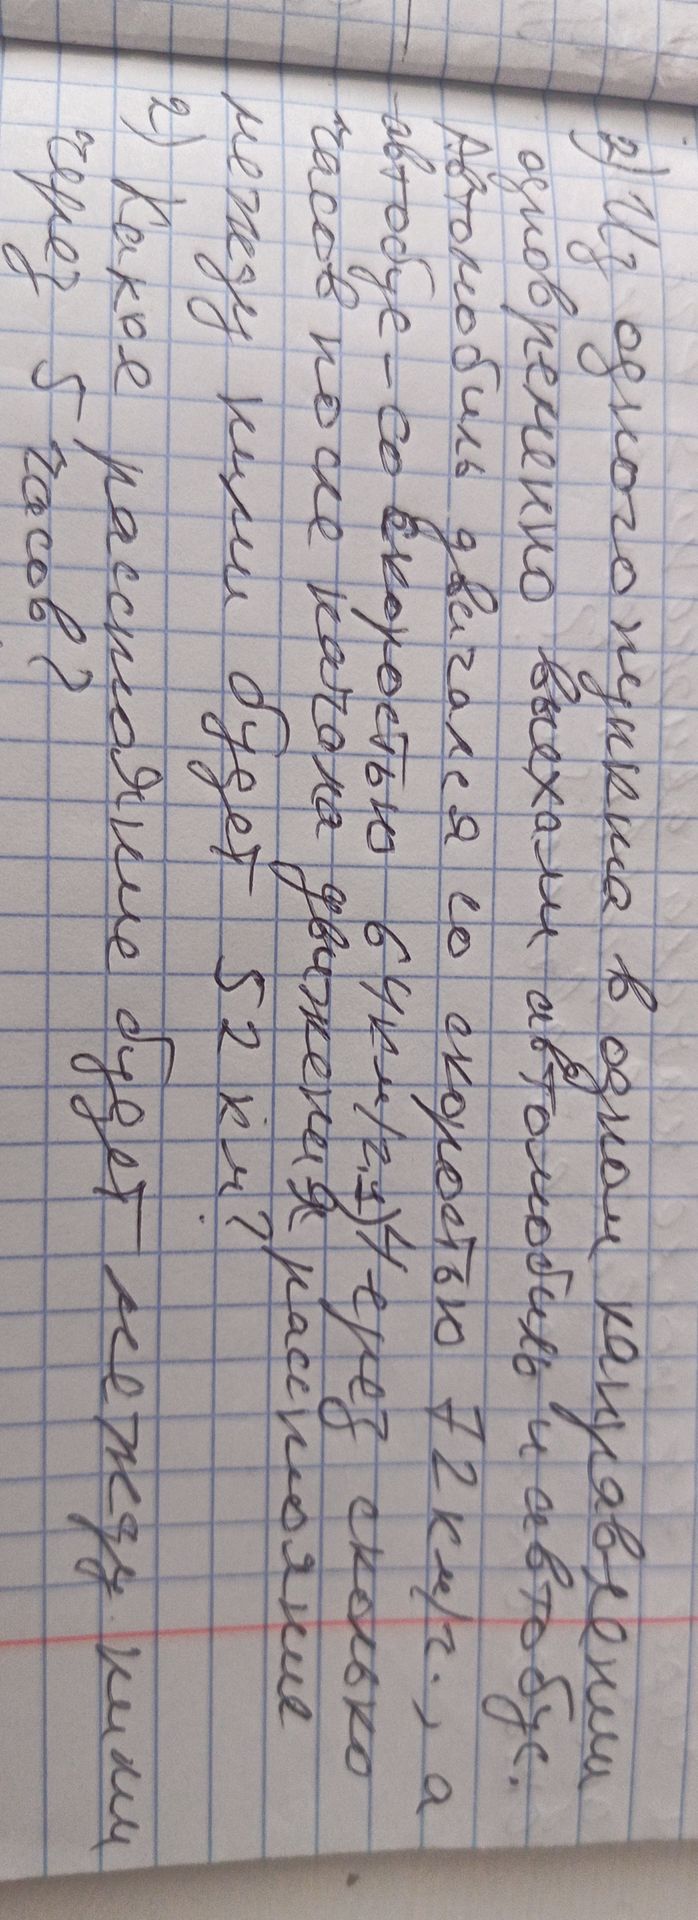 2) Из одного пункта в одном направлении
одновременно выехали автомобиль и автобус.
Автомобиль двигался со скоростью 72 км/ч., а
автобус - со скоростью 64 км/ч. 1) Через сколько
часов после начала движения расстояние
между ними будет 52 км?
2) Какое расстояние будет между ними
через 5 часов?